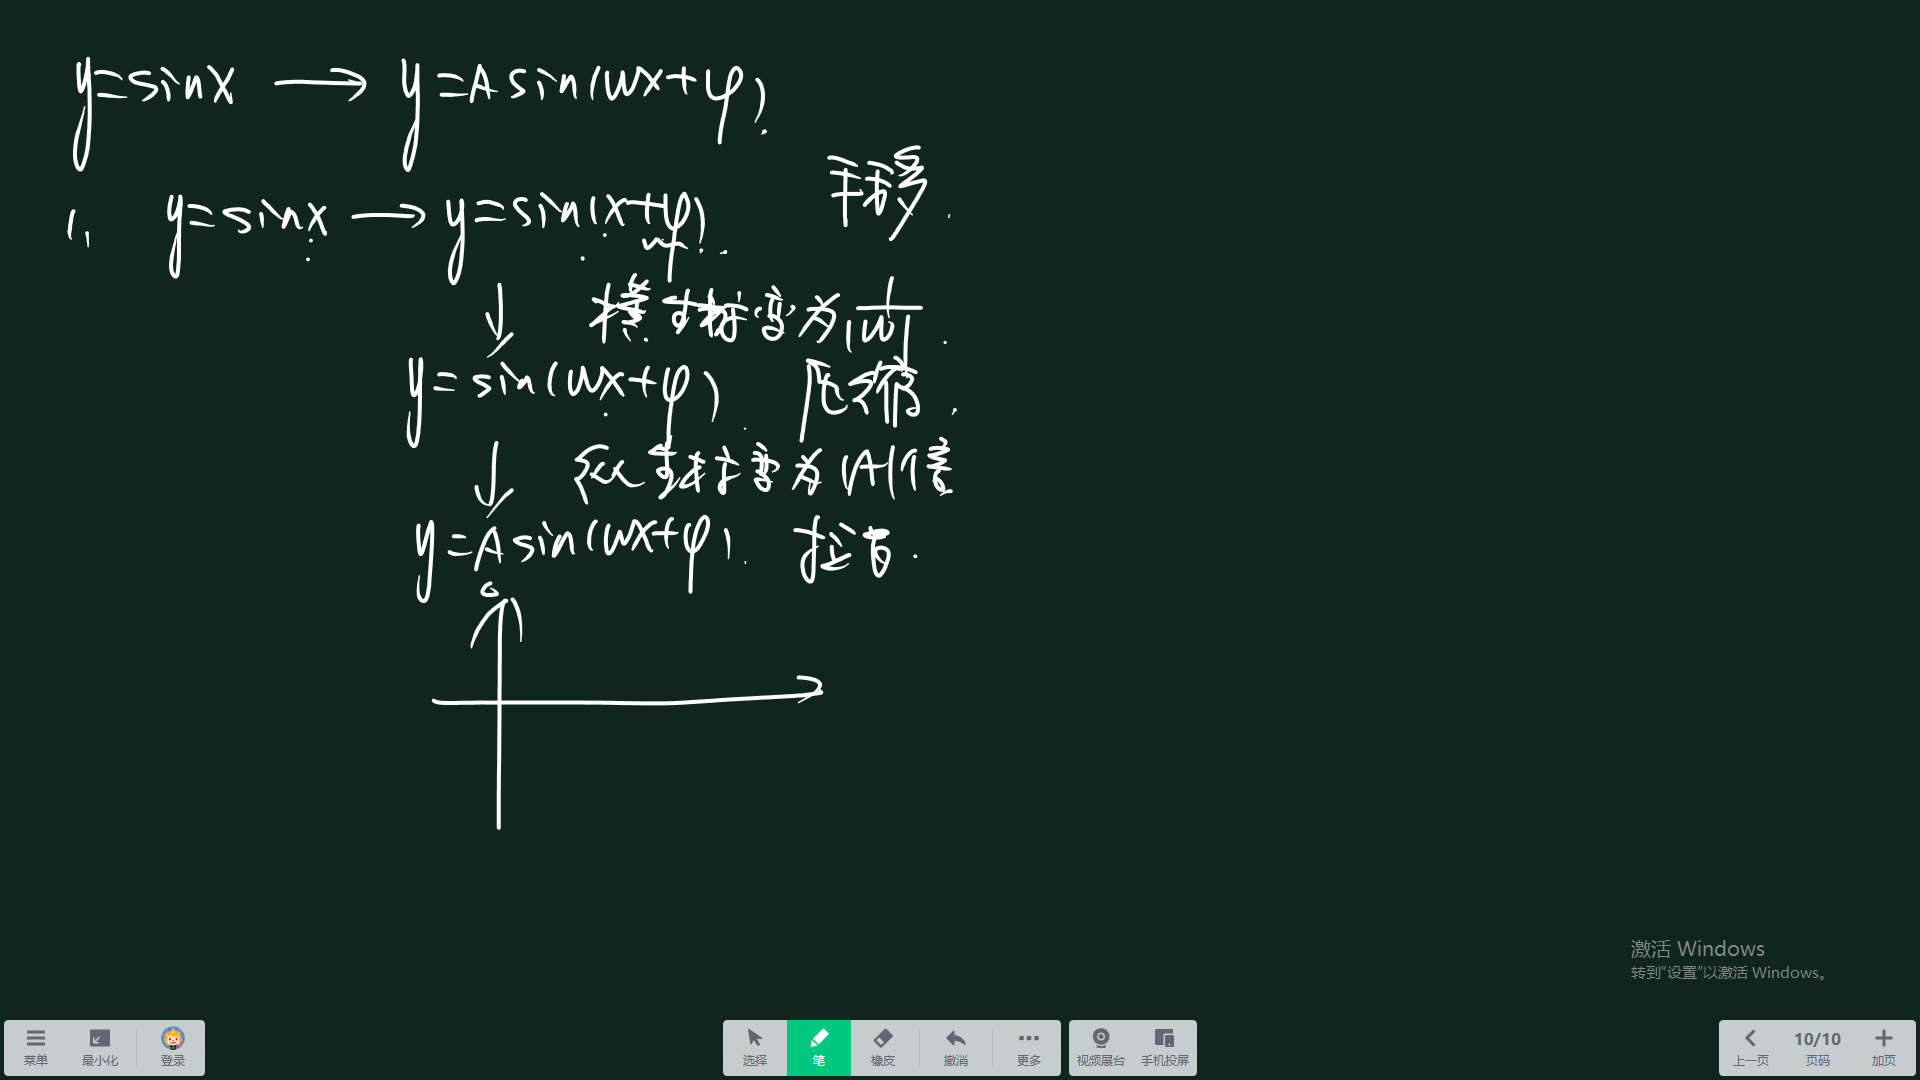 y=sinx → y=Asin(ωx+φ).
1. y=sinx → y=sin(x+φ). 平移.
↓ 横坐标变为 1/|ω| .
y=sin(ωx+φ). 压缩.
↓ 纵坐标变为|A|倍
y=Asin(ωx+φ). 拉高.
激活 Windows
转到“设置”以激活 Windows。
菜单 最小化 登录 选择 笔 橡皮 撤消 更多 视频展台 手机投屏 上一页 10/10 页码 加页